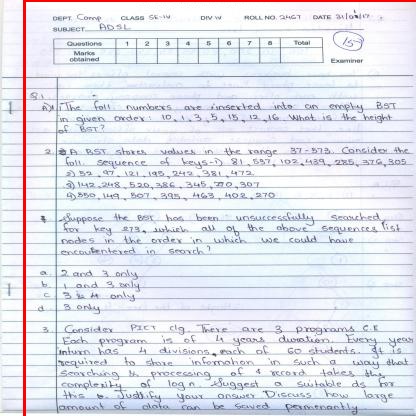 DEPT. Comp CLASS SE-IV DIV IV ROLL NO. 2467 DATE 31/01/17
SUBJECT ADSL
Questions 1 2 3 4 5 6 7 8 Total
Marks obtained
15
Examiner
Q.1
A) 1 The foll numbers are inserted into an empty BST
in given order: 10, 1, 3, 5, 15, 12, 16. What is the height
of BST?
2. A BST stores values in the range 37-573. Consider the
foll. sequence of keys-1) 81, 537, 102, 439, 285, 376, 305
2) 52, 97, 121, 195, 242, 381, 472
3) 142, 248, 520, 386, 345, 270, 307
4) 550, 149, 507, 395, 463, 402, 270
Suppose the BST has been unsuccessfully searched
for key 273, which all of the above sequences list
nodes in the order in which we could have
encountered in search?
a. 2 and 3 only
b. 1 and 3 only
c. 3 & 4 only
d. 3 only
3. Consider PICT clg. There are 3 programs C.E
Each program is of 4 years duration. Every year
inturn has 4 divisions, each of 60 students. It is
required to store information in such a way that
searching & processing of record takes the
complexity of logn. Suggest a suitable ds for
this. Justify your answer. Discuss how large
amount of data can be saved permanently